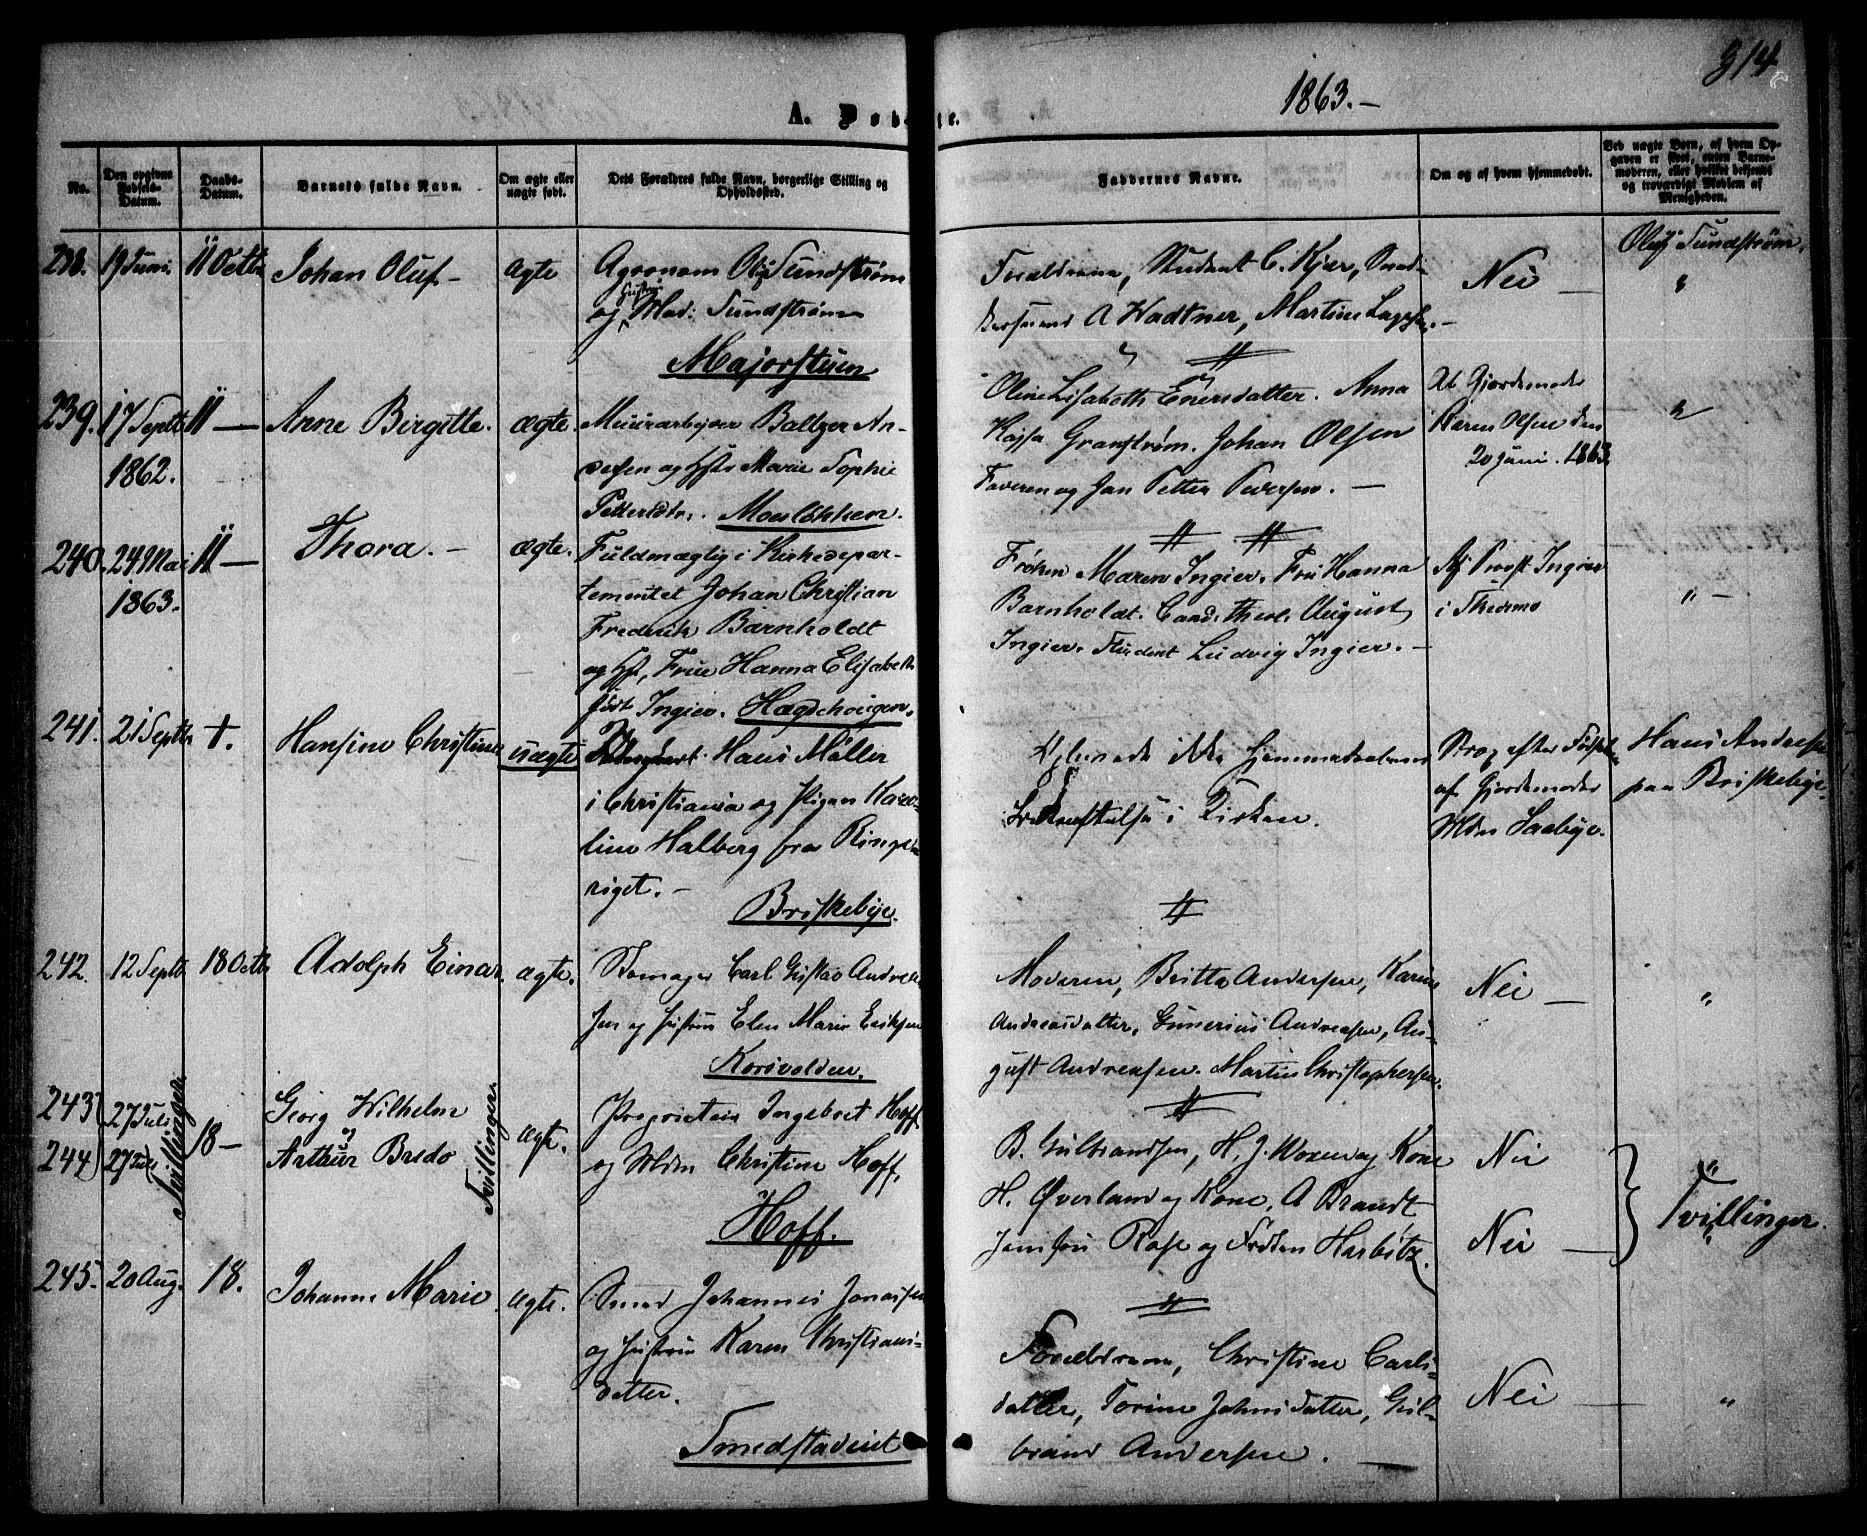 314
1863.-
A. Døbte.
No.
Den opgivne Fødsels-Datum.
Daabs-Datum.
Barnets fulde Navn.
Om ægte eller uægte født.
Dets Forældres fulde Navn, borgerlige Stilling og Opholdssted.
Faddernes Navne.
Om og af hvem hjemmedøbt.
Ved uægte Børn, af hvem Opgaven er skeet, enten Barnemoderen, eller hvilket bekjendt og troværdigt Medlem af Menigheden.
238.
19 Juni.
11 Octb
Johan Oluf-
ægte
Agronom Oluf Sundstrøm
og Hustru Mad: Sundstrøm
Majorstuen
Forældrene, Student C. Kjær,
A Wadtner, Martine
Nei
Oluf Sundstrøm
"
239.
17 Septb
1862.
11 -
Arne Birgitte.
ægte.
Muurarbejder Baltzer An-
dersen og Hstr Marie Sophie
Pettersdtr. Moesløkken.
Oline Lisabeth Enersdatter. Anna
Kajsa Granstrøm. Johan Olsen
Faveren og Jan Petter Pedersen. -
Af Gjordemoder
Karen Olsen den
20 Juni. 1863
"
240.
24 Mai
1863.
11 -
Thora. -
ægte.
Fuldmægtig i Kirkedepar-
tementet Johan Christian
Frederik Barnholdt
og Hst, Frue Hanna Elisabeth
født Ingier. Hægdehougen.
Frøken Maren Ingier. Fru Hanna
Barnholdt. Cand. theol. August
Ingier. Student Ludvig Ingier. -
Af Provst Ingier
i Skedsmo
" -
241.
21 Septb
+.
Hansine Christine
uægte
Hans Møller
i Christiania og Pigen Karo-
line Halberg fra Ringe-
riget. -
Briskebye.
ikke Hjemmedaabens
Bekræftelse i Kirken.
Strax efter Fødselen
af Gjordemoder
Mdm Saabye.
Hans Andresen
paa Briskebye.
242.
12 Septb
18 Octb
Adolph Einar
ægte.
Skomager Carl Gustav Andrea-
sen og Hustru Elen Marie Eriksen
Korsvolden.
Moderen, Britta Andersen, Karine
Andreasdatter, Gunerius Andreasen, Au-
gust Andreasen. Martin Christophersen.
Nei -
"
243
244
27 Juli
27 Juli
Tvillinger
18 -
Georg Wilhelm
og
Arthur Bredo
Tvillinger
ægte.
Proprietær Ingebret Hoff
og Mdm Christine Hoff,
Hoff.
B. Gulbrandsen, H. J. Woxen og Kone
H. Øverland og Kone, A Brandt
Jomfru Rose og Frøken Harbitz.
Nei
Nei -
"
Tvillinger.
"
245.
20 Aug.
18.
Johanne Marie
ægte.
Smed Johannes Jonassen
og Hustru Karen Christians-
datter.
Smedstadeiet
Forældrene, Christine Carls-
datter, Torine Johnsdatter, Gul-
brand Andersen.
Nei -
"